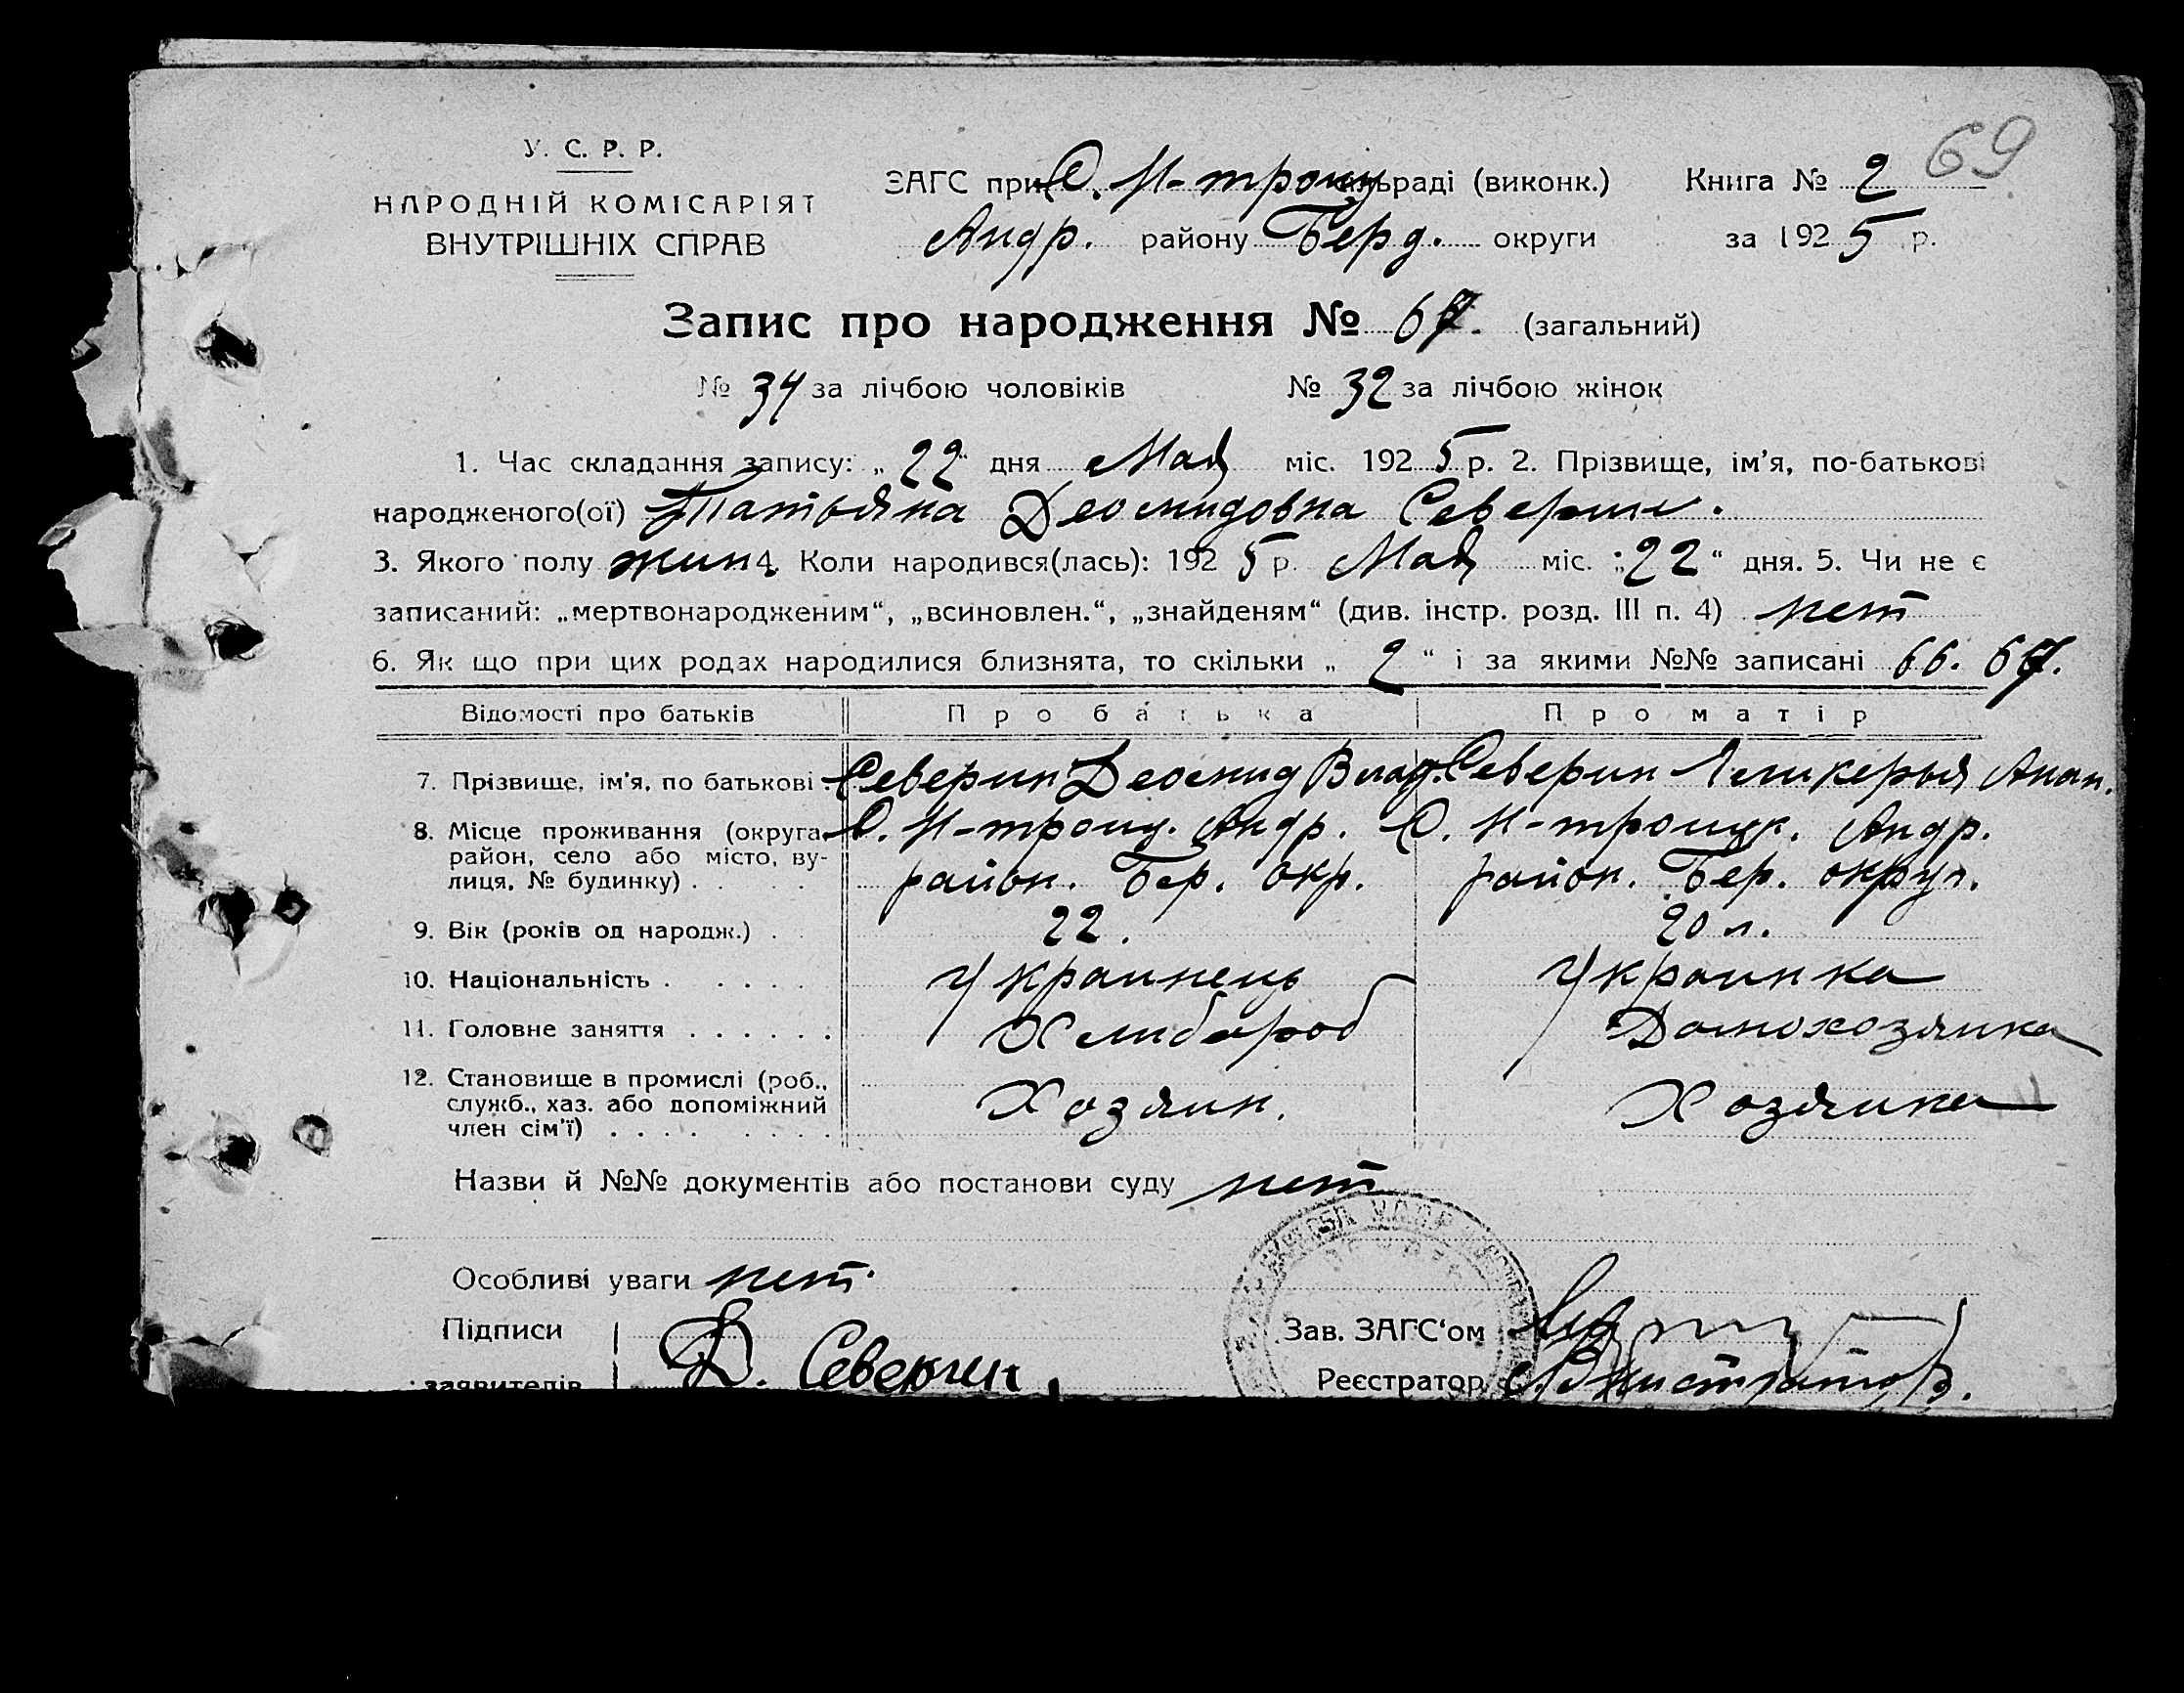 69
У. С. Р. Р.
НАРОДНІЙ КОМІСАРІЯТ
ВНУТРІШНІХ СПРАВ
ЗАГС при С. Н-троиц сільраді (виконк.) Книга № 2
Андр. району Берд. округи за 1925 р.
Запис про народження № 67. (загальний)
№ 34 за лічбою чоловіків № 32 за лічбою жінок
1. Час складання запису: „22" дня Мая міс. 1925 р. 2. Прізвище, ім'я, по-батькові
народженого(ої) Татьяна Деомидовна Северин.
3. Якого полу жин 4. Коли народився(лась): 1925 р. Мая міс. „22" дня. 5. Чи не є
записаний: „мертвонародженим", „всиновлен.", „знайденям" (див. інстр. розд. III п. 4) нет
6. Як що при цих родах народилися близнята, то скільки „2" і за якими №№ записані 66. 67.
Відомості про батьків Про батька Про матір
7. Прізвище, ім'я, по батькові Северин Деомид Влад. Северин Анан.
8. Місце проживання (округа, район, село або місто, ву-
лиця, № будинку) С. Н-троиц. Андр. район. Бер. окр. С. Н-троицк. Андр. район. Бер. округ.
9. Вік (років од народж.) 22. 20 л.
10. Національність Украинець Украинка
11. Головне заняття Хлибороб Домохозяика
12. Становище в промислі (роб.,
служб., хаз. або допоміжний
член сім'ї) Хозяин. Хозяика
Назви й №№ документів або постанови суду нет
Особливі уваги нет.
Підписи Зав. ЗАГС'ом
заявителів Д. Северин Реєстратор